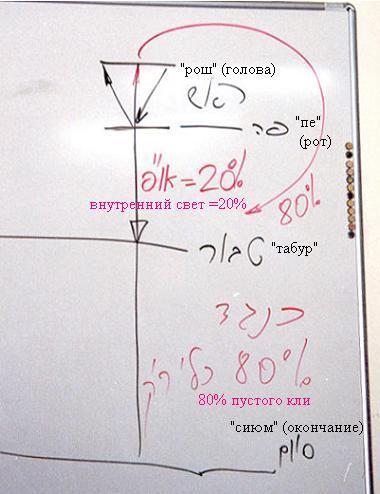 "рош" (голова)
ראש
"пе"
(рот)
פה
או"פ = 20%
внутренний свет =20%
80%
"табур"
טבור
כנגד
80% כלי ריק
80% пустого кли
"сиюм" (окончание)
סיום